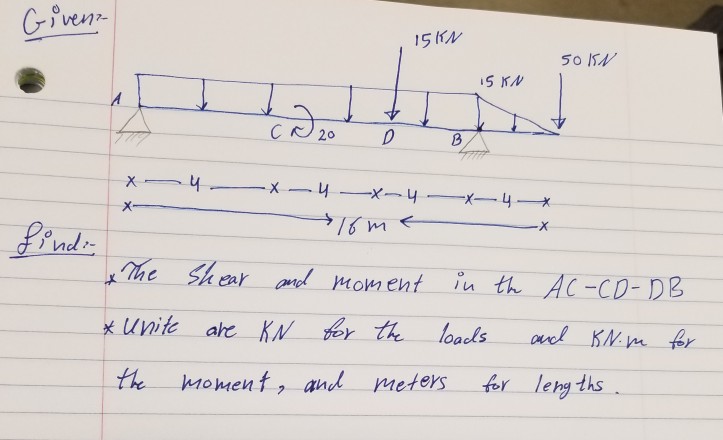 Given:-
15 KN
50 KN
15 KN
A
C 20 D B
x 4 x 4 x 4 x 4 x
x 16 m x
find:-
* The Shear and moment in th AC-CD-DB
* Unite are KN for the loads and KN.m for
the moment, and meters for lengths.